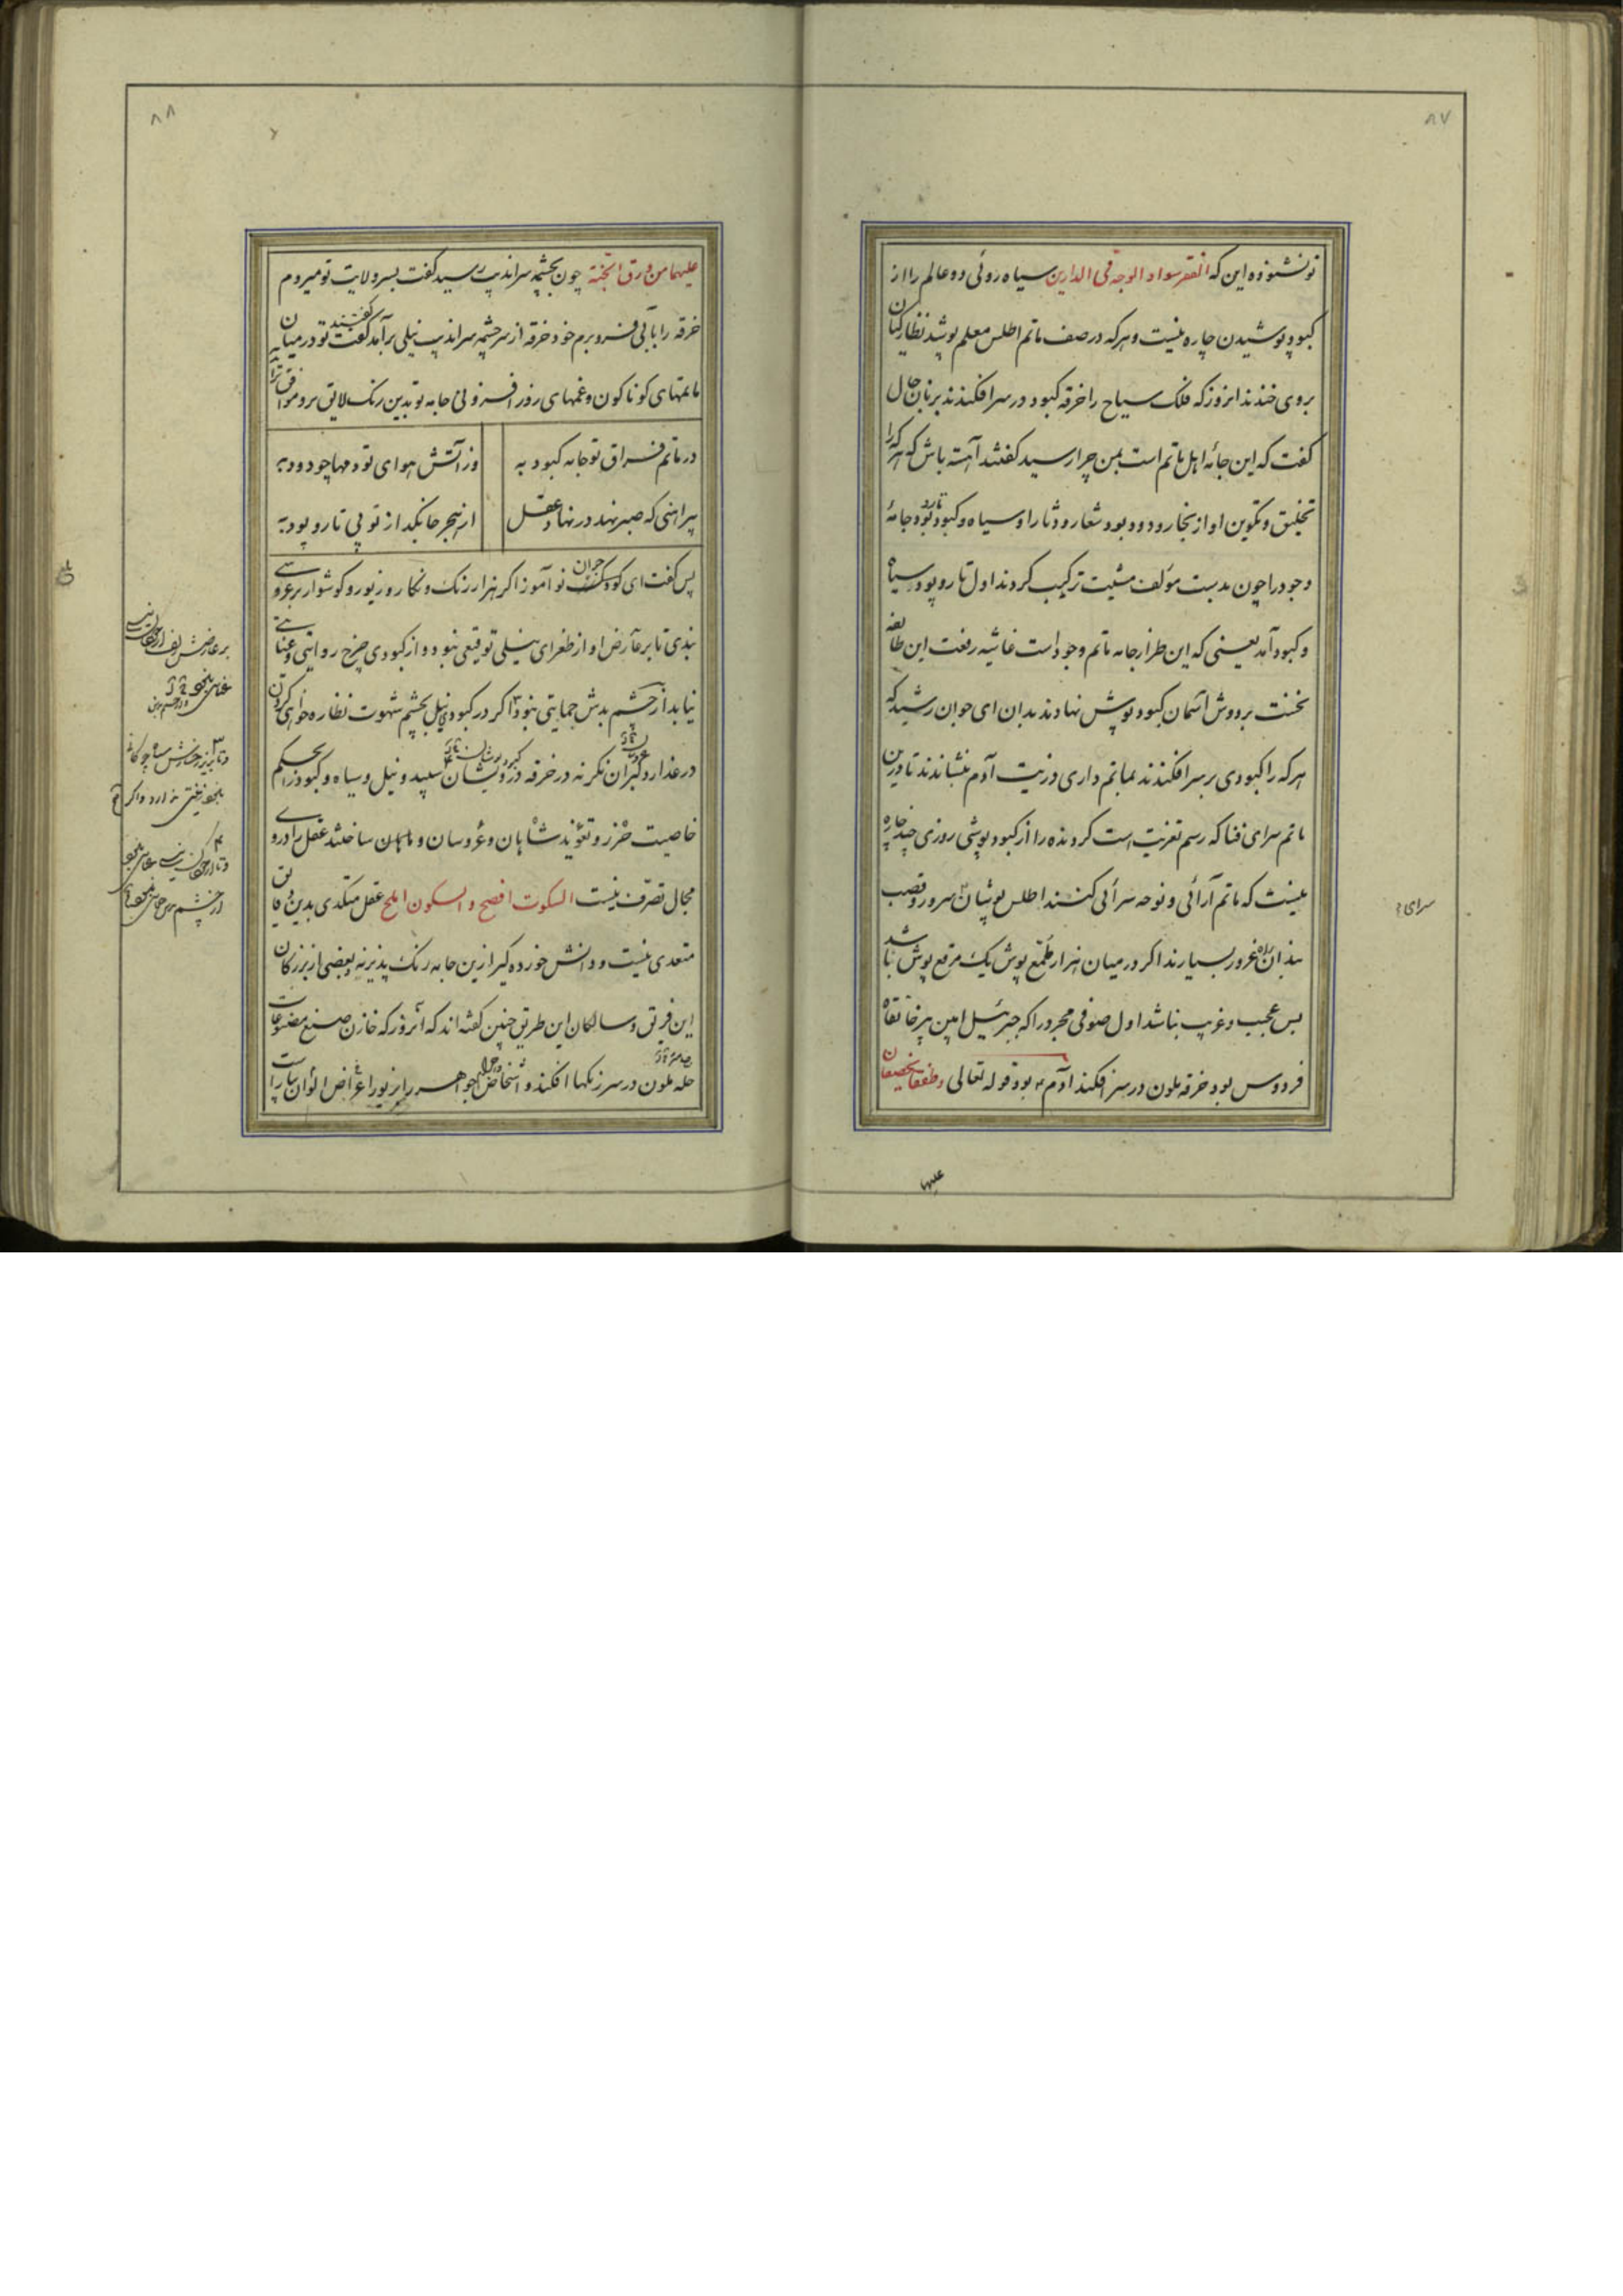 ۸۷
تو نشنوده این که الفقر سواد الوجه فی الدارین سیاه روئی دو عالم را از
کبود پوشیدن چاره نیست و هر که در صف ماتم اطلس معلم پوشد نظارکیان
بروی خندند انروز که فلک سیاح را خرقه کبود در سر افکندند بزبان حال
کفت که این جامه اهل ماتم است بمن چرا رسید کفتند آهسته باش که هر که را
تخلیق و تکوین او از بخار و دود بود شعار و دثار او سیاه و کبود بود جامهٔ
وجود را چون بدست مؤلف مشیت ترکیب کردند اول تار و پود سیاه
و کبود آمد یعنی که این طراز جامه ماتم وجود است غاشیه رفعت این طائفه
نخست بر دوش آسمان کبود پوش نهادند بدان ای جوان رشید که
هر که را کبودی بر سر افکندند بماتم داری وزنیت آدم بنشاندند تا درین
ماتم سرای فنا که رسم تعزیت است کرونده را از کبود پوشی روزی چند چاره
نیست که ماتم آرائی و نوحه سرائی کنند اطلس پوشان سرور و قصب
بندان راه غرور بسیارند اکر در میان هزار ملمّع پوش یک مرقع پوش باشد
بس عجیب و غریب نباشد اول صوفی مجرد را که جبرئیل امین پیر خانقاه
فردوس بود خرقه ملون در سر افکند آدم بود قوله تعالی وطفقا یخصفان
سرای
علیهما
۸۸
علیهما من ورق الجنة چون بچشمه سراندیب رسید کفت بسر ولایت تو میروم
خرقه را بآبی فرو برم خود خرقه از سر چشمه سراندیب نیلی برآمد کفتند تو در میان
ماتمهای کوناکون و غمهای روز افزونی جامه تو بدین رنک لایق تر و موافق
در ماتم فراق تو جامه کبود به
وز آتش هوای تو دمها چو دود به
پیراهنی که صبر نهد در نهاد عقل
از هجر جانکداز تو بی تار و پود به
پس کفت ای کودک نو آموز اکر هزار رنک و نکار و زیور و کوشوار بر عروسی
بندی تا بر عارض او از طغرای نیلی توقیعی نبود و از کبودی چرخ روایتی و عنایتی
نیابد از چشم بدش حمایتی نبود اکر در کبودی نیل بچشم شهوت نظاره خواهی کردن
در عذار دکران نکر نه در خرقه درویشان سپید و نیل و سیاه و کبود را بحکم
خاصیت حرز و تعوید شاهان و عروسان و ماهان ساختند عقل را درو
مجال تصرف نیست السکوت افصح والسکون املح عقل متکدی بدین دقایق
متعدی نیست و دانش خورده کیر ازین جامه رنک پذیر نه و بعضی از بزرکان
این فریق و سالکان این طریق چنین کفته اند که آنروز که خازن صنع مصنوعات
حله ملون در سر رنکها افکند و اشخاص جواهر را بزیور اعراض الوان بیاراست